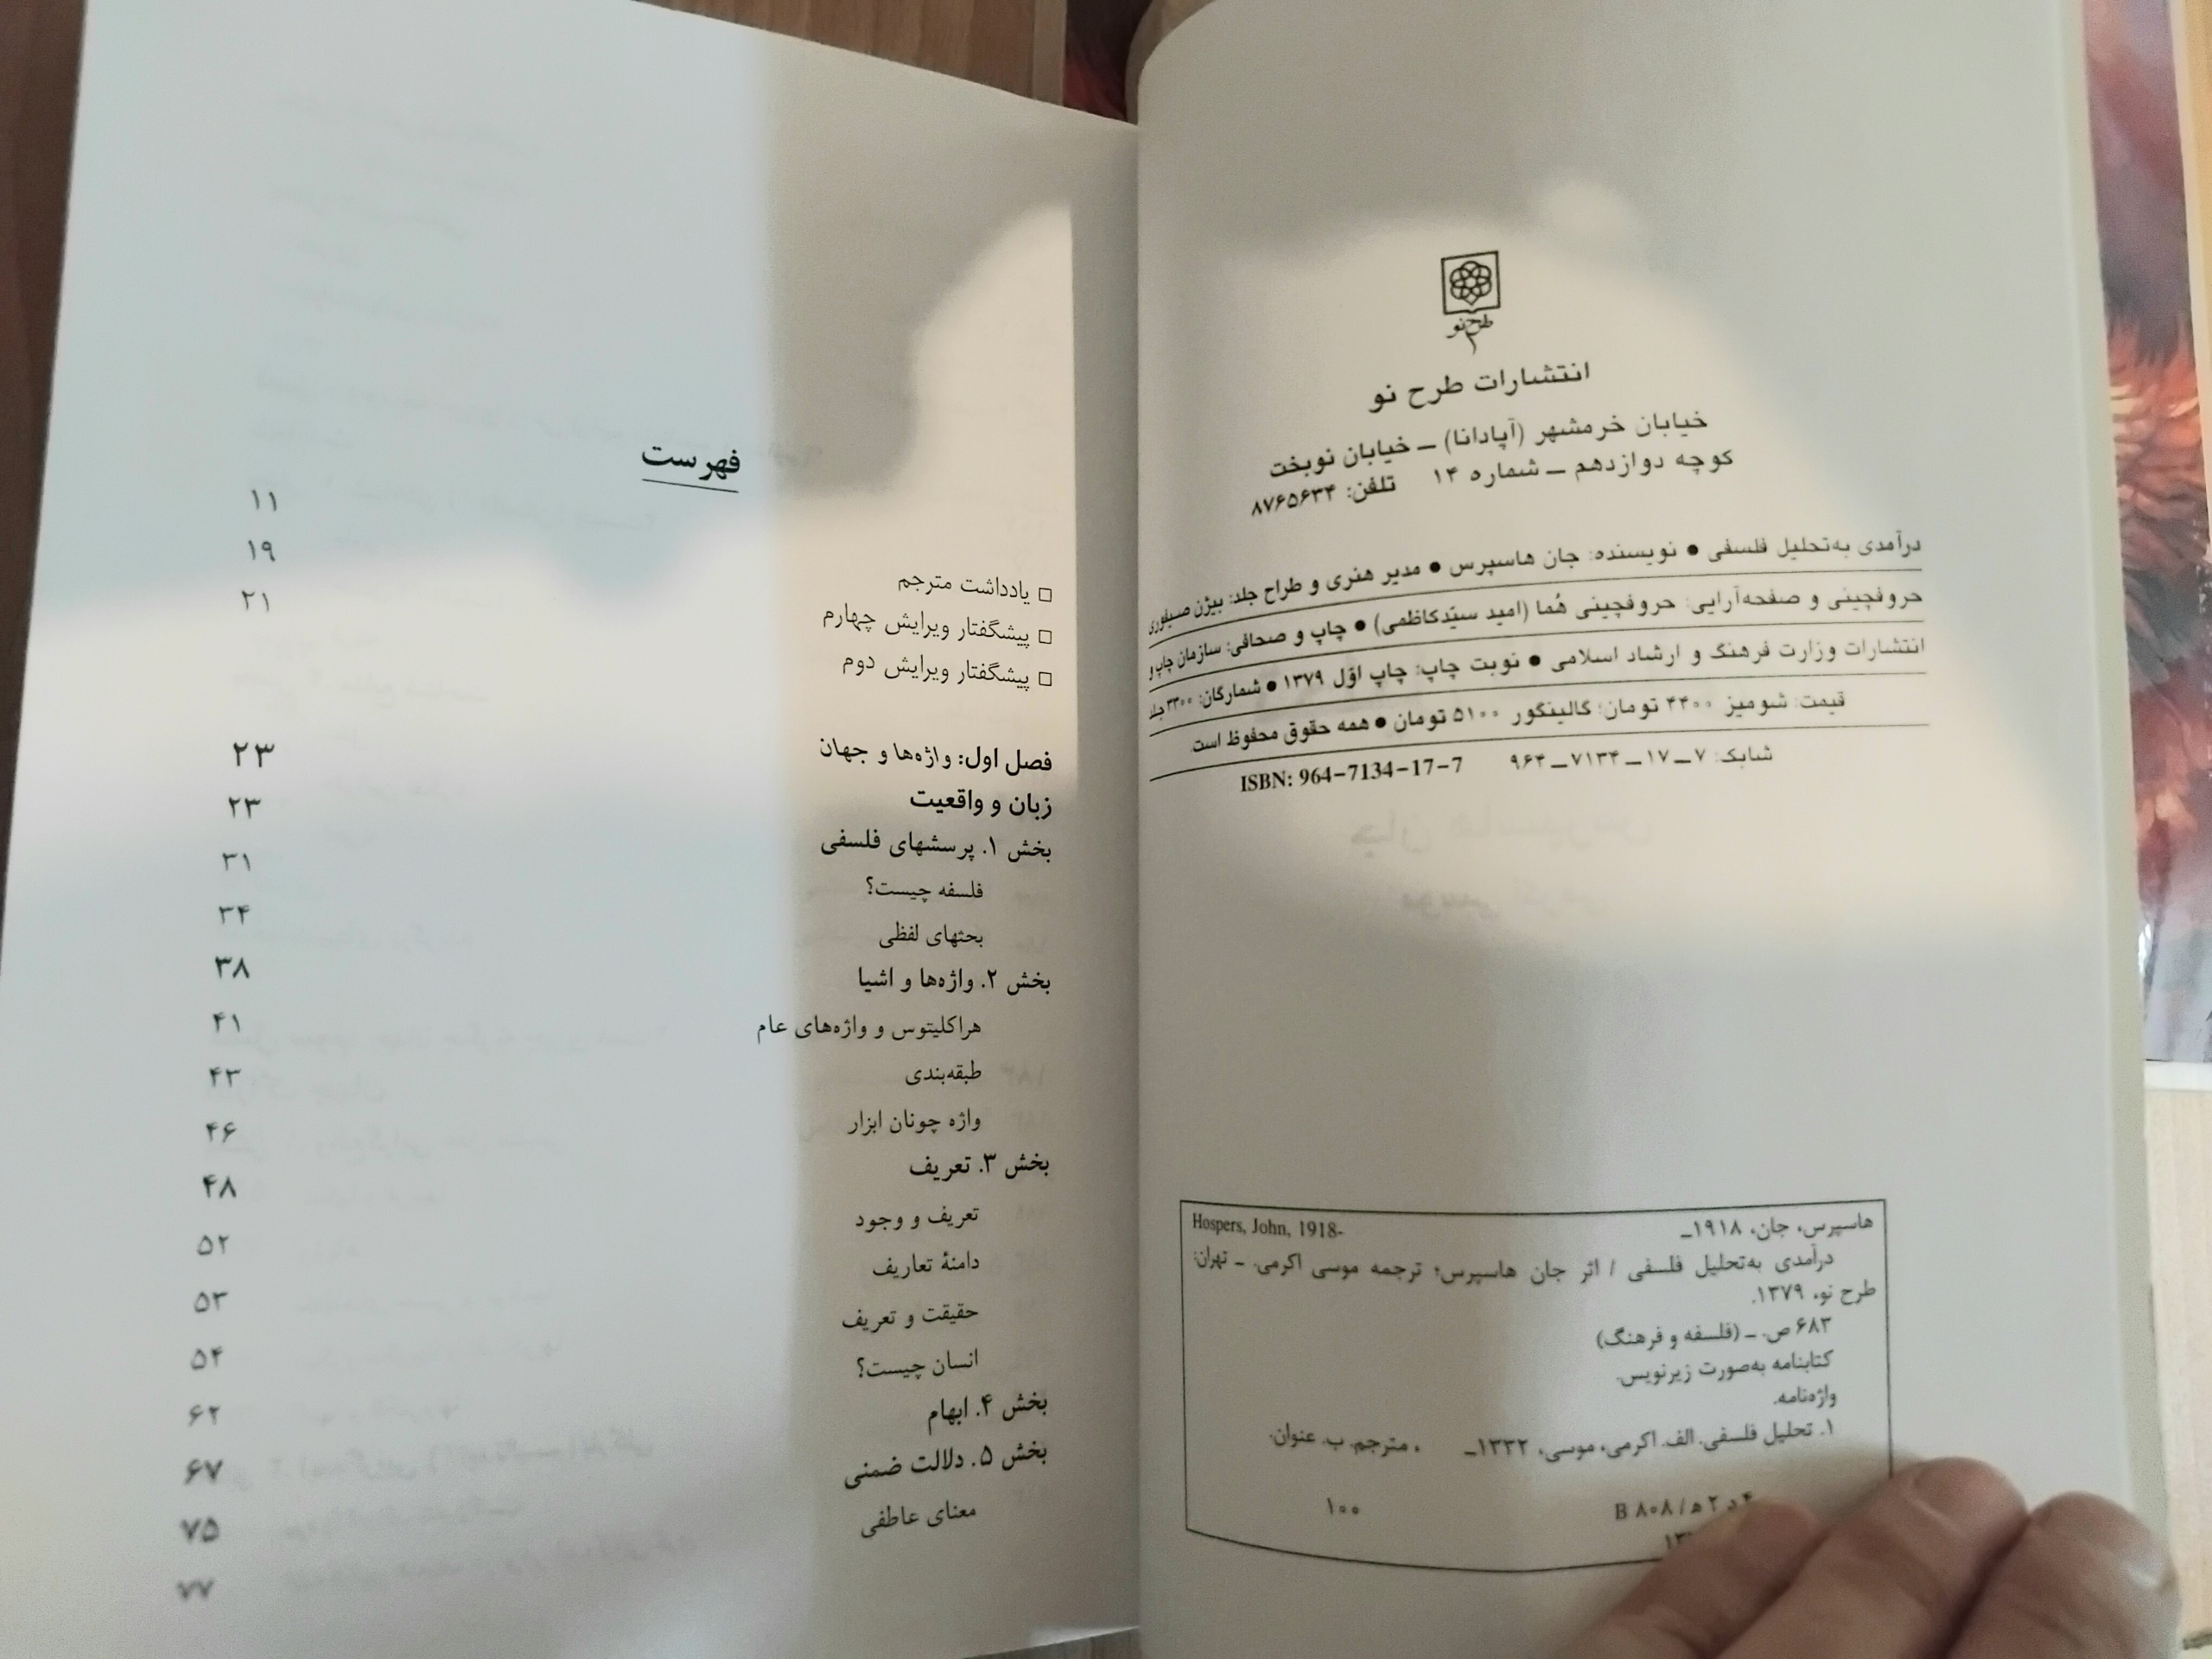 طرح نو
انتشارات طرح نو
خیابان خرمشهر (آپادانا) ــ خیابان نوبخت
کوچه دوازدهم ــ شماره ۱۴ تلفن: ۸۷۶۵۶۳۴
درآمدی به‌تحلیل فلسفی ● نویسنده: جان هاسپرس ● مدیر هنری و طراح جلد: بیژن صیفوری
حروفچینی و صفحه‌آرایی: حروفچینی هُما (امید سیّدکاظمی) ● چاپ و صحافی: سازمان چاپ و
انتشارات وزارت فرهنگ و ارشاد اسلامی ● نوبت چاپ: چاپ اوّل ۱۳۷۹ ● شمارگان: ۳۳۰۰ جلد
قیمت: شومیز ۴۴۰۰ تومان؛ گالینگور ۵۱۰۰ تومان ● همه حقوق محفوظ است.
شابک: ۷ــ۱۷ــ۷۱۳۴ــ۹۶۴ ISBN: 964-7134-17-7
هاسپرس، جان، ۱۹۱۸ــ Hospers, John, 1918-
درآمدی به‌تحلیل فلسفی / اثر جان هاسپرس؛ ترجمه موسی اکرمی. ــ تهران:
طرح نو، ۱۳۷۹.
۶۸۳ ص. ــ (فلسفه و فرهنگ)
کتابنامه به‌صورت زیرنویس.
واژه‌نامه.
۱. تحلیل فلسفی. الف. اکرمی، موسی، ۱۳۳۲ــ ، مترجم. ب. عنوان.
۴ د ۲ ه‍ / ۸۰۸ B ۱۰۰
فهرست
□ یادداشت مترجم ۱۱
□ پیشگفتار ویرایش چهارم ۱۹
□ پیشگفتار ویرایش دوم ۲۱
فصل اول: واژه‌ها و جهان ۲۳
زبان و واقعیت ۲۳
بخش ۱. پرسشهای فلسفی ۳۱
فلسفه چیست؟ ۳۴
بحثهای لفظی ۳۸
بخش ۲. واژه‌ها و اشیا ۴۱
هراکلیتوس و واژه‌های عام ۴۳
طبقه‌بندی ۴۶
واژه چونان ابزار ۴۸
بخش ۳. تعریف ۵۲
تعریف و وجود ۵۳
دامنهٔ تعاریف ۵۴
حقیقت و تعریف ۶۲
انسان چیست؟ ۶۷
بخش ۴. ابهام ۷۵
بخش ۵. دلالت ضمنی ۷۷
معنای عاطفی